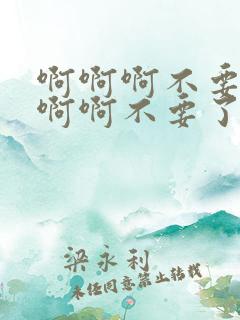 啊啊啊不要
啊啊不要了
梁永利
未经同意禁止转载